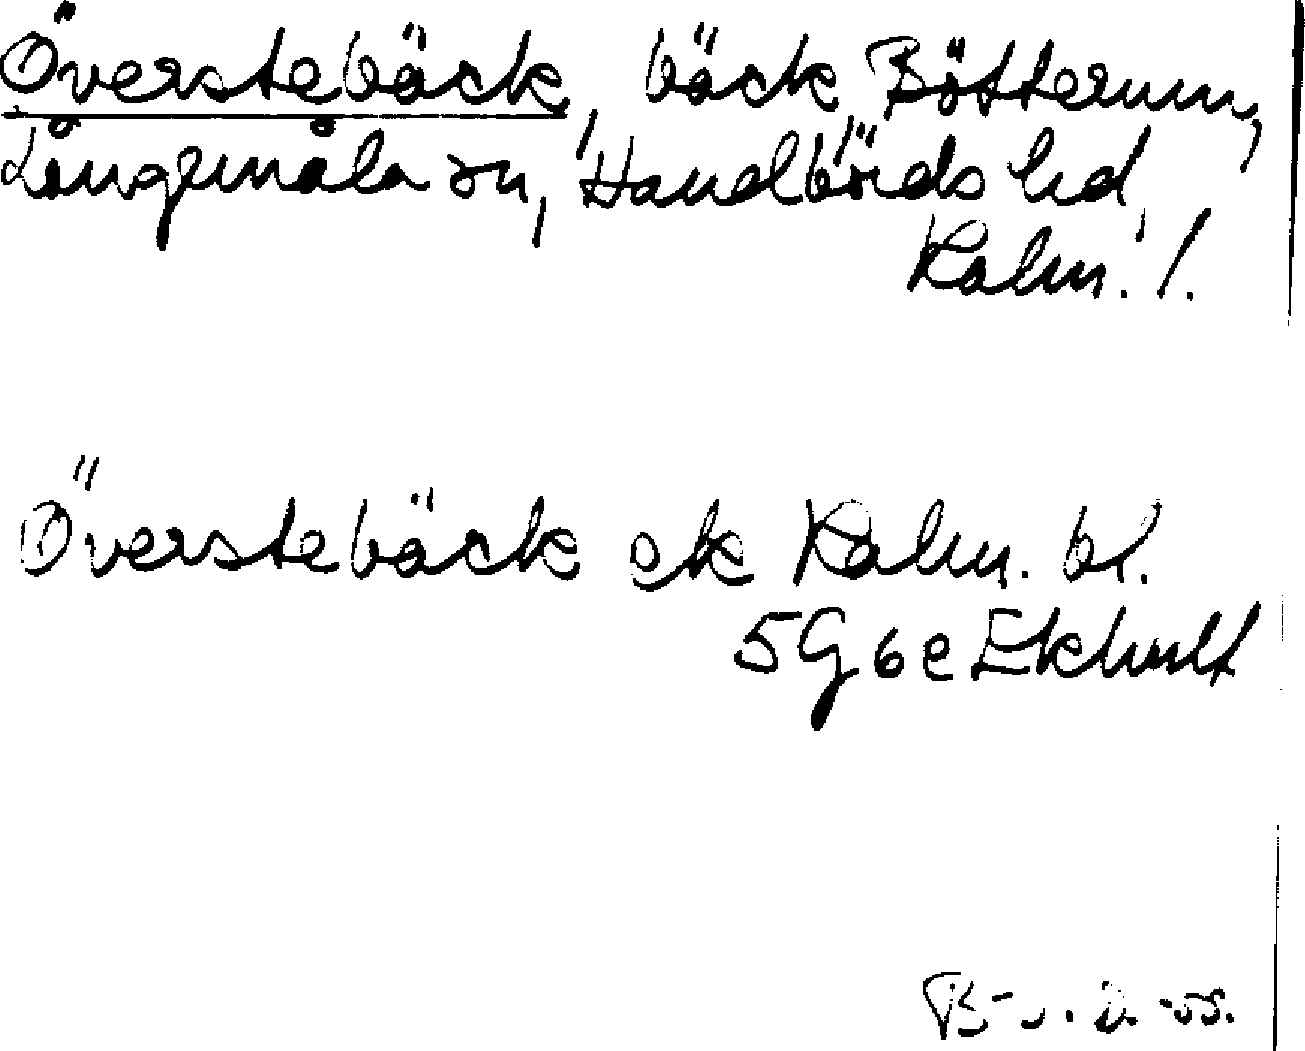 Överstebäck, bäck, Bötterum,
Långemåla sn, Handbörds hd,
Kalm. l.
Överstebäck ek Kalm. bl.
5G 6e Ekhult